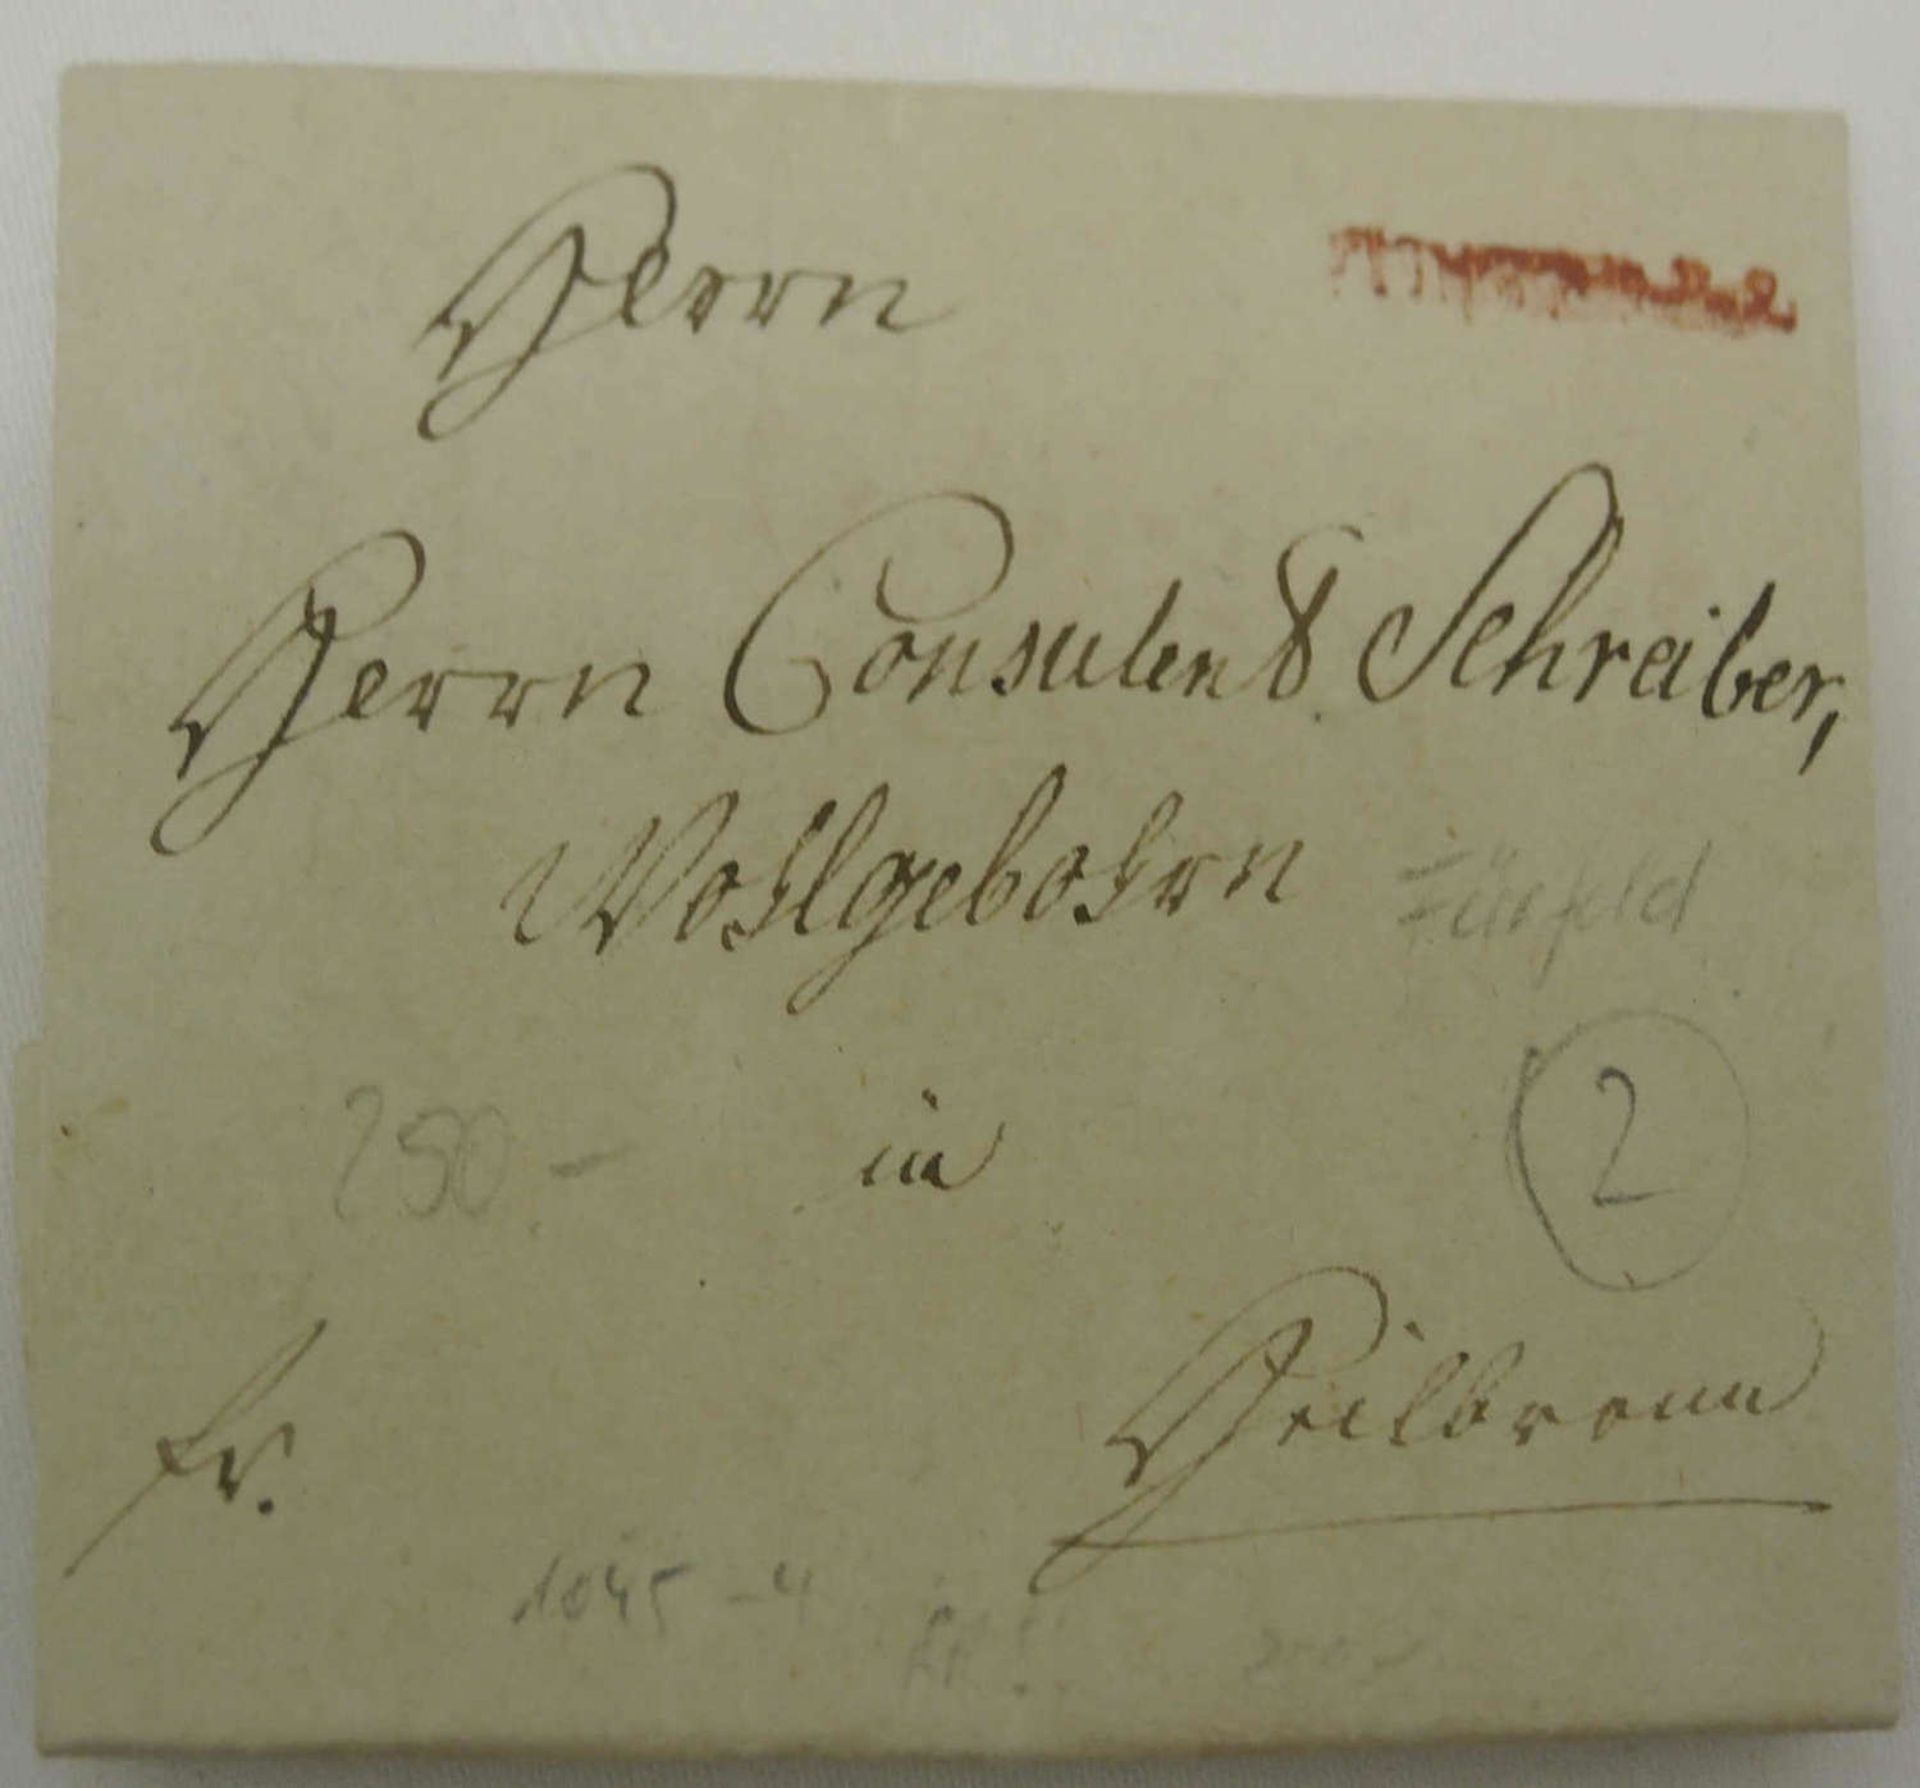 Herrn
Herrn Consulent Schreiber,
Wohlgebohrn
Fürfeld
250 – in 2
fr. Heilbronn
1045 – 4